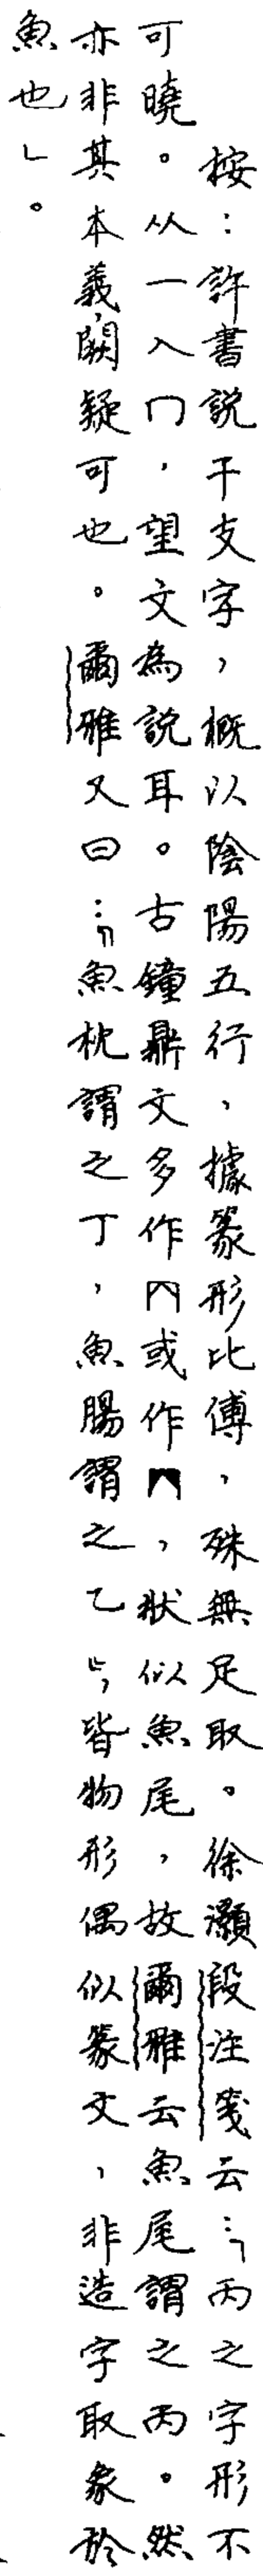 按：許書說干支字，概以陰陽五行，據篆形比傅，殊無足取。徐灝段注箋云：「丙之字形不
可曉。从一入冂，望文為說耳。古鐘鼎文多作或作，狀似魚尾，故爾雅云魚尾謂之丙。然
亦非其本義，闕疑可也。爾雅又曰：『魚枕謂之丁，魚腸謂之乙』，皆物形偶似篆文，非造字取象於
魚也」。